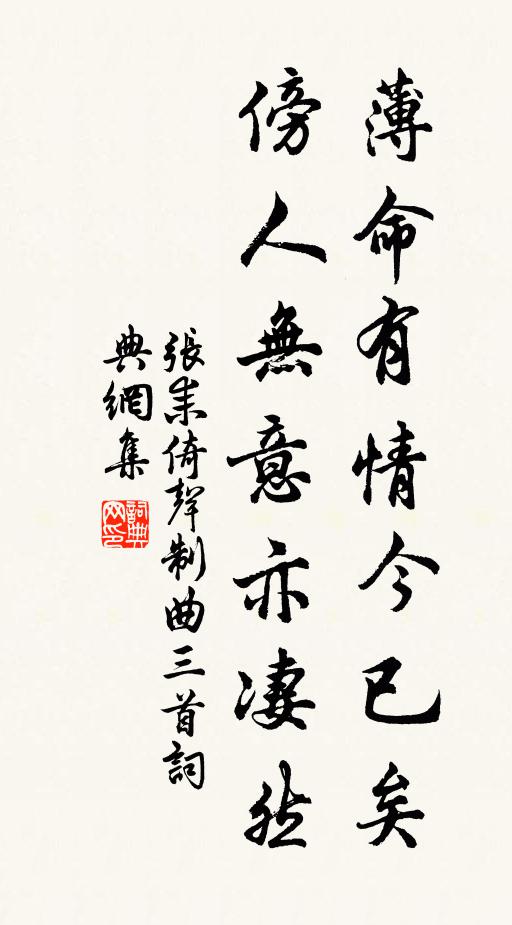 薄命有情今已矣
傍人無意亦凄然
張耒倚聲制曲三首詞
典網集
詞典
网印